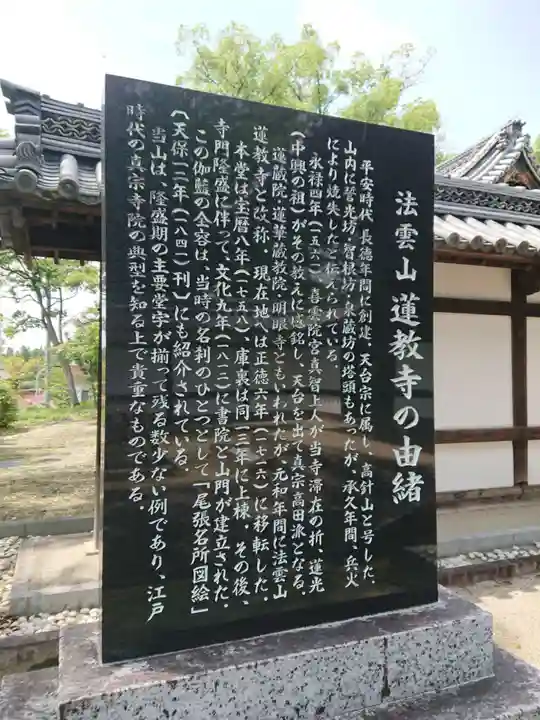 法雲山 蓮教寺の由緒
平安時代 長徳年間に創建、天台宗に属し、高針山と号した。
山内に誓光坊・智積坊・東蔵坊の塔頭もあったが、承久年間、兵火
により焼失したと伝えられている。
永禄四年（一五六一）善雲院宮真智上人が当寺滞在の折、蓮光
（中興の祖）がその教えに感銘し、天台を出て真宗高田派となる。
蓮蔵院・蓮華蔵教院・明眼寺ともいわれたが、元和年間に法雲山
蓮教寺と改称。現在地へは正徳六年（一七一六）に移転した。
本堂は宝暦八年（一七五八）、庫裏は同一三年に上棟。その後、
寺門隆盛に伴って、文化九年（一八一二）に書院と山門が建立された。
この伽藍の全容は、当時の名刹のひとつとして「尾張名所図絵」
〔天保一二年（一八四一）刊〕にも紹介されている。
当山は、隆盛期の主要堂宇が揃って残る数少ない例であり、江戸
時代の真宗寺院の典型を知る上で貴重なものである。